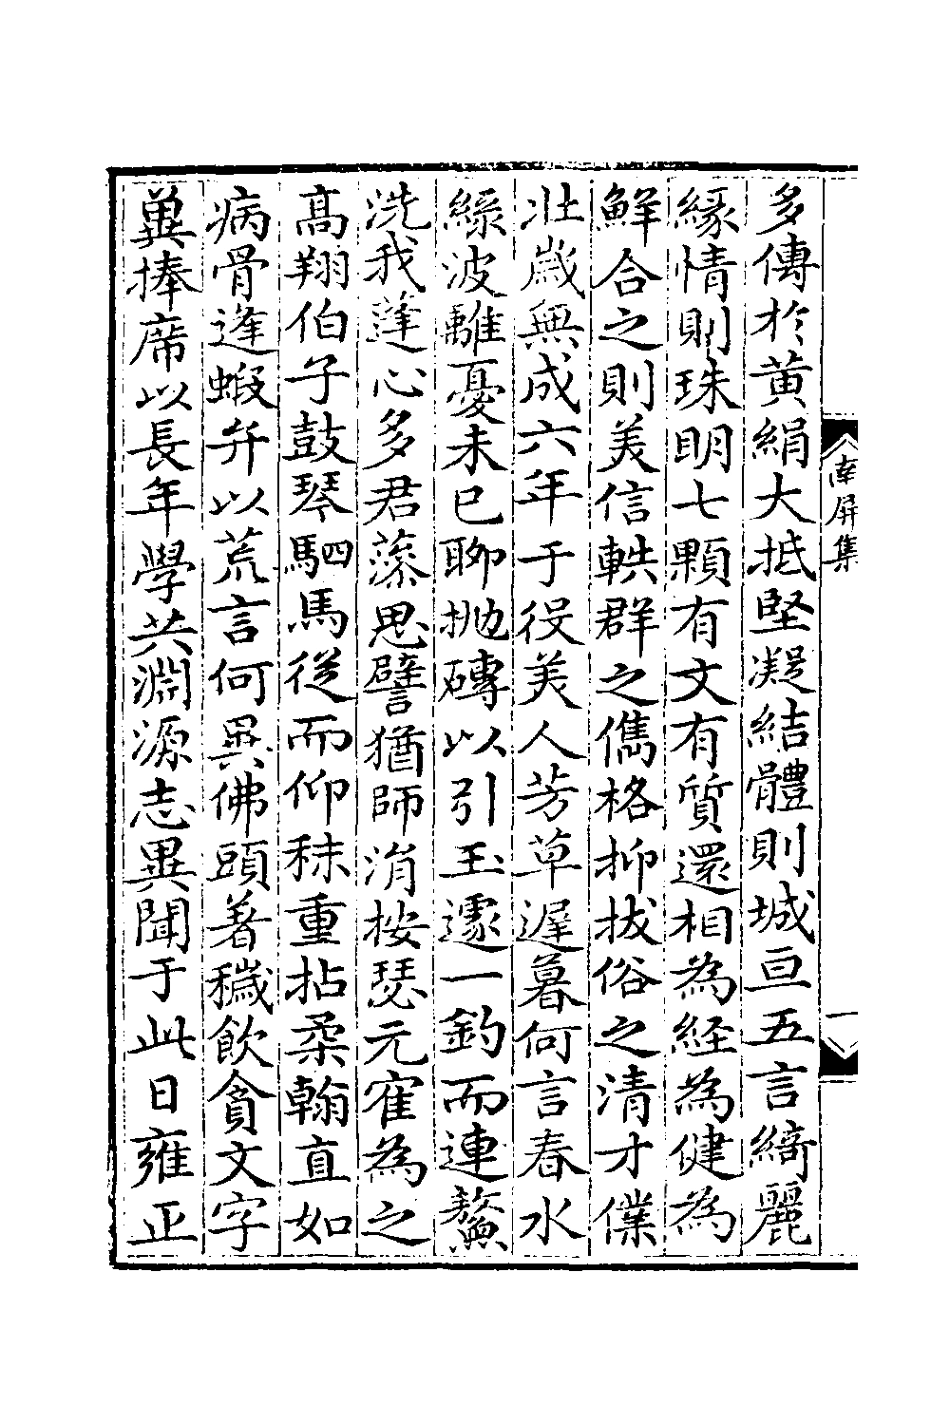 多傳於黃絹大抵堅凝結體則城亘五言綺麗
緣情則珠明七顆有文有質還相為經為健為
鮮合之則美信軼群之儁格抑拔俗之清才僕
壯歲無成六年于役美人芳草遲暮何言春水
綠波離憂未已聊拋磚以引玉遂一釣而連鼇
洗我蓬心多君藻思譬猶師涓按瑟元寉為之
高翔伯子鼓琴駟馬從而仰秣重拈柔翰直如
病骨逢蝦并以荒言何異佛頭著穢飲貪文字
冀捧席以長年學共淵源志異聞于此日雍正
南屏集
一